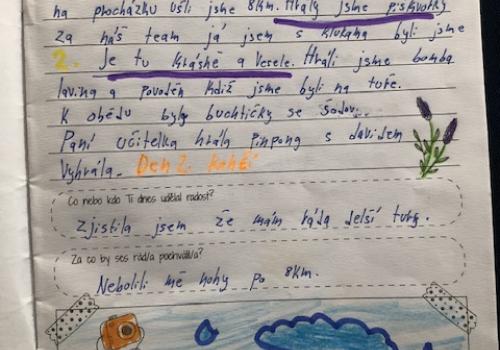 na procházku ušli jsme 8km. Hrály jsme piškvorky
za náš team já jsem s klukama byli jsme
2. Je tu krásně a vesele. Hráli jsme bomba
lavina a povodeň když jsme byli na tuře.
K obědu byly buchtičky se šodó...
Paní učitelka hrála Pinpong s davidem
Vyhrála. Den 2. končí
Co nebo kdo Ti dnes udělal radost?
Zjistila jsem že mám ráda delší túry.
Za co by ses rád/a pochválil/a?
Neboleli mě nohy po 8km.